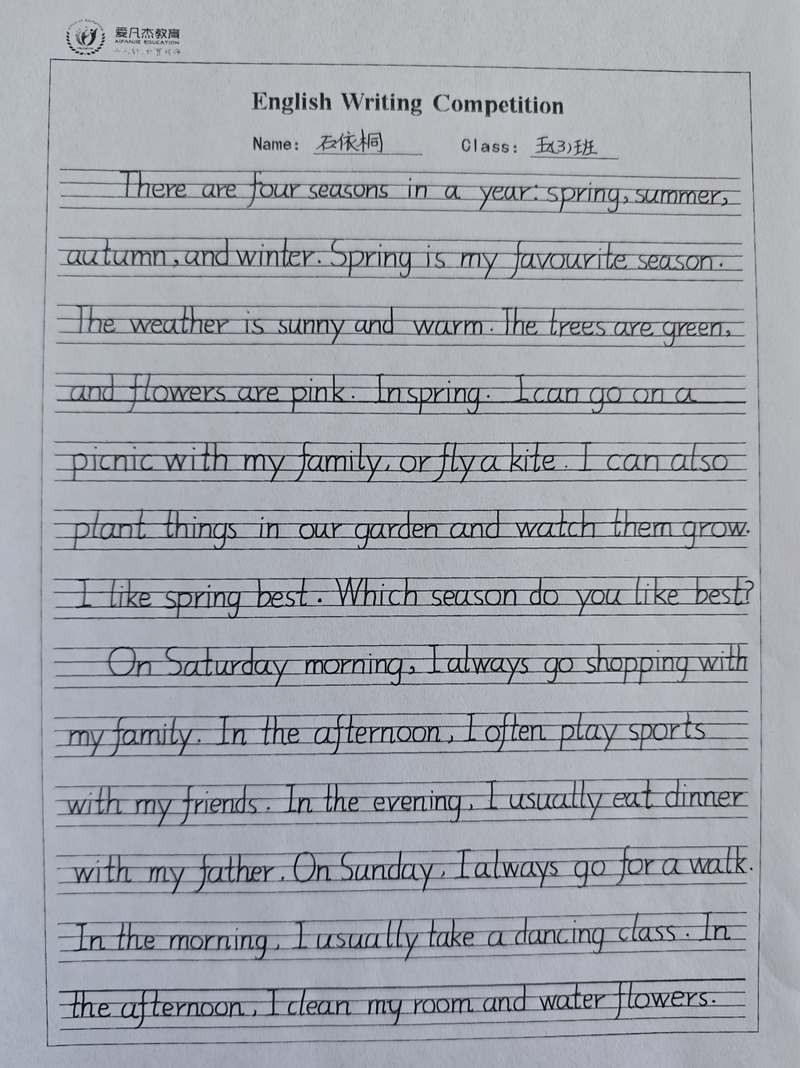 爱凡杰教育
AIFANJIE EDUCATION
English Writing Competition
Name: 石依桐 Class: 五(3)班
There are four seasons in a year: spring, summer,
autumn, and winter. Spring is my favourite season.
The weather is sunny and warm. The trees are green,
and flowers are pink. In spring. I can go on a
picnic with my family, or fly a kite. I can also
plant things in our garden and watch them grow.
I like spring best. Which season do you like best?
On Saturday morning, I always go shopping with
my family. In the afternoon, I often play sports
with my friends. In the evening, I usually eat dinner
with my father. On Sunday, I always go for a walk.
In the morning, I usually take a dancing class. In
the afternoon, I clean my room and water flowers.